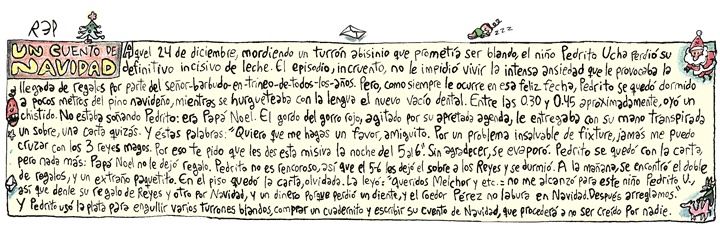 REP
UN CUENTO DE NAVIDAD
Aquel 24 de diciembre, mordiendo un turrón abisinio que prometía ser blando, el niño Pedrito Ucha perdió su
definitivo incisivo de leche. El episodio, incruento, no le impidió vivir la intensa ansiedad que le provocaba la
llegada de regalos por parte del señor-barbudo-en-trineo-de-todos-los-años. Pero, como siempre le ocurre en esa feliz fecha, Pedrito se quedó dormido
a pocos metros del pino navideño, mientras se hurgueteaba con la lengua el nuevo vacío dental. Entre las 0.30 y 0.45 aproximadamente, oyó un
chistido. No estaba soñando Pedrito: era Papá Noel. El gordo del gorro rojo, agitado por su apretada agenda, le entregaba con su mano transpirada
un sobre, una carta quizás. Y estas palabras: "Quiero que me hagas un favor, amiguito. Por un problema insalvable de fixture, jamás me puedo
cruzar con los 3 reyes magos. Por eso te pido que les des esta misiva la noche del 5 al 6". Sin agradecer, se evaporó. Pedrito se quedó con la carta
pero nada más: Papá Noel no le dejó regalo. Pedrito no es rencoroso, así que el 5-6 les dejó el sobre a los Reyes y se durmió. A la mañana, se encontró el doble
de regalos, y un extraño paquetito. En el piso quedó la carta, olvidada. La leyó: "Queridos Melchor y etc.: no me alcanzó para este niño Pedrito U.,
así que denle su regalo de Reyes y otro por Navidad, y un dinero porque perdió un diente, y el Gedor Pérez no labura en Navidad. Después arreglamos."
Y Pedrito usó la plata para engullir varios turrones blandos, comprar un cuadernito y escribir su cuento de Navidad, que procederá a no ser creído por nadie.
zzz